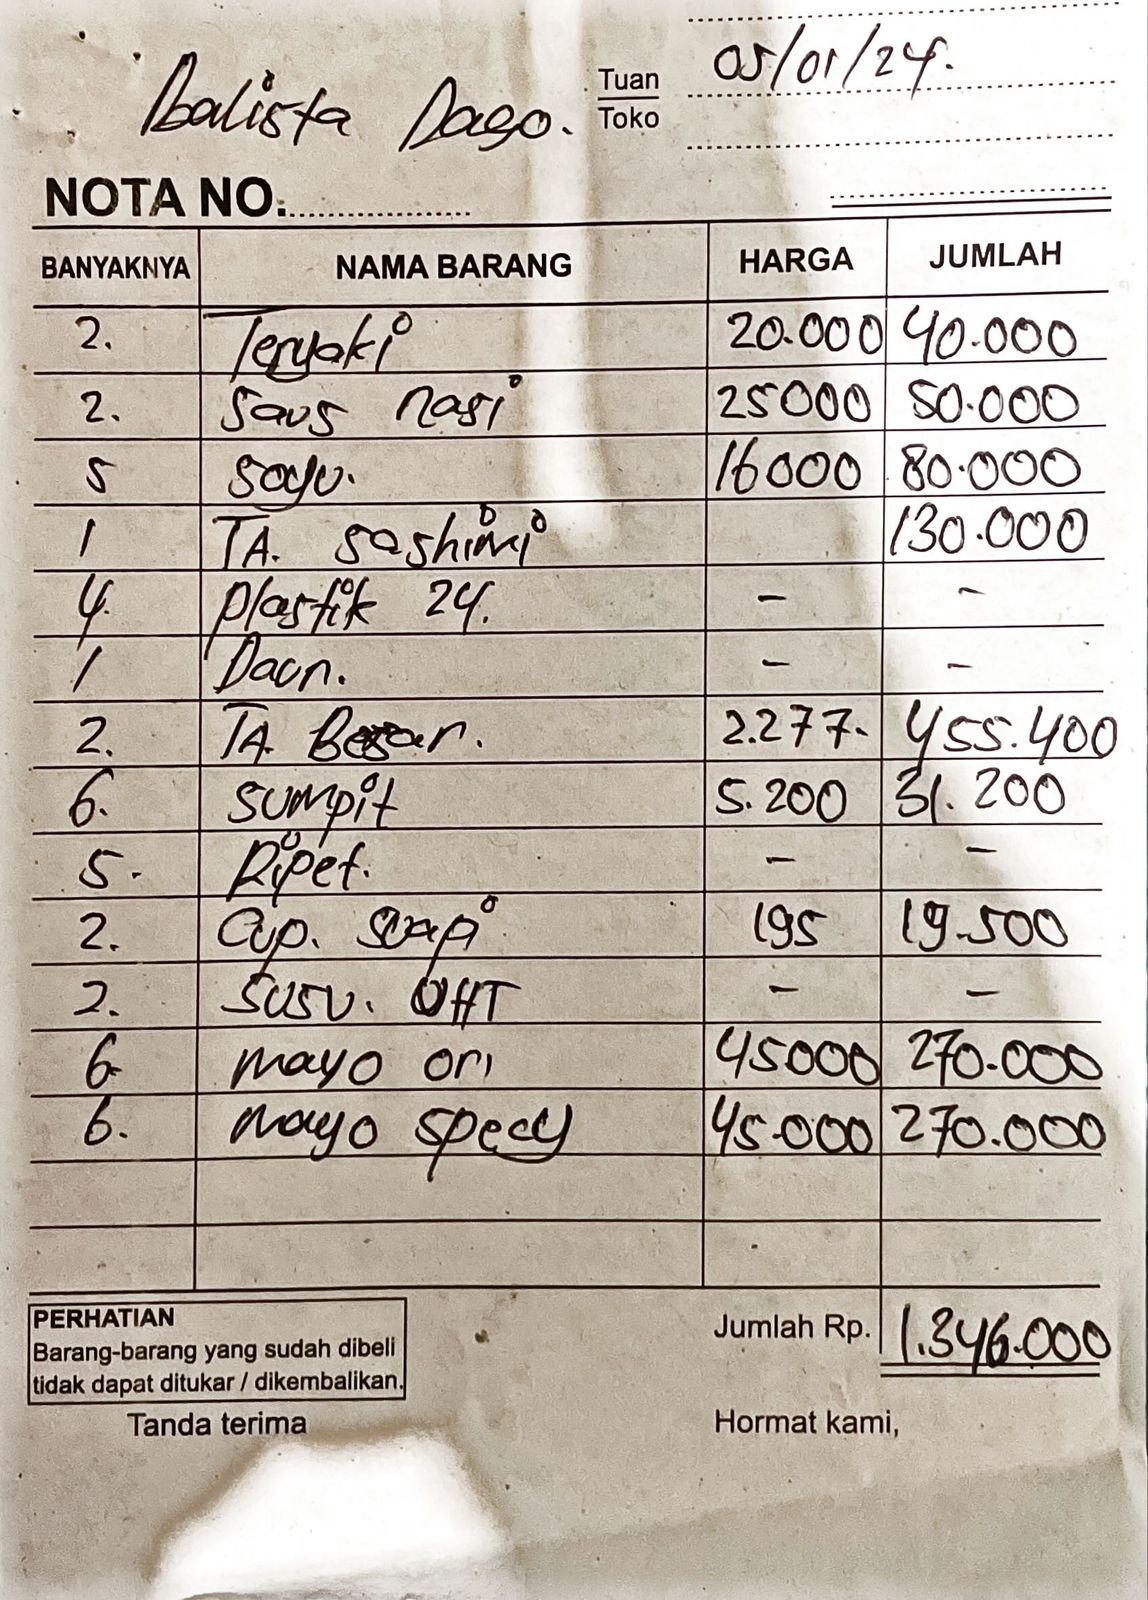 Balista Dago.
Tuan
Toko
05/01/24.
NOTA NO.
BANYAKNYA NAMA BARANG HARGA JUMLAH
2. Teryaki 20.000 40.000
2. Saus nasi 25000 50.000
5 Soyu. 16000 80.000
1 TA. Sashimi 130.000
4. Plastik 24. - -
1 Daun. - -
2. TA. Besar. 2.277. 455.400
6. Sumpit 5.200 31.200
5. Ripet. - -
2. Cup. Soapi 195 19.500
2. Susu. UHT - -
6. mayo ori 45000 270.000
6. mayo specy 45.000 270.000
PERHATIAN
Barang-barang yang sudah dibeli
tidak dapat ditukar / dikembalikan.
Jumlah Rp. 1.346.000
Tanda terima Hormat kami,